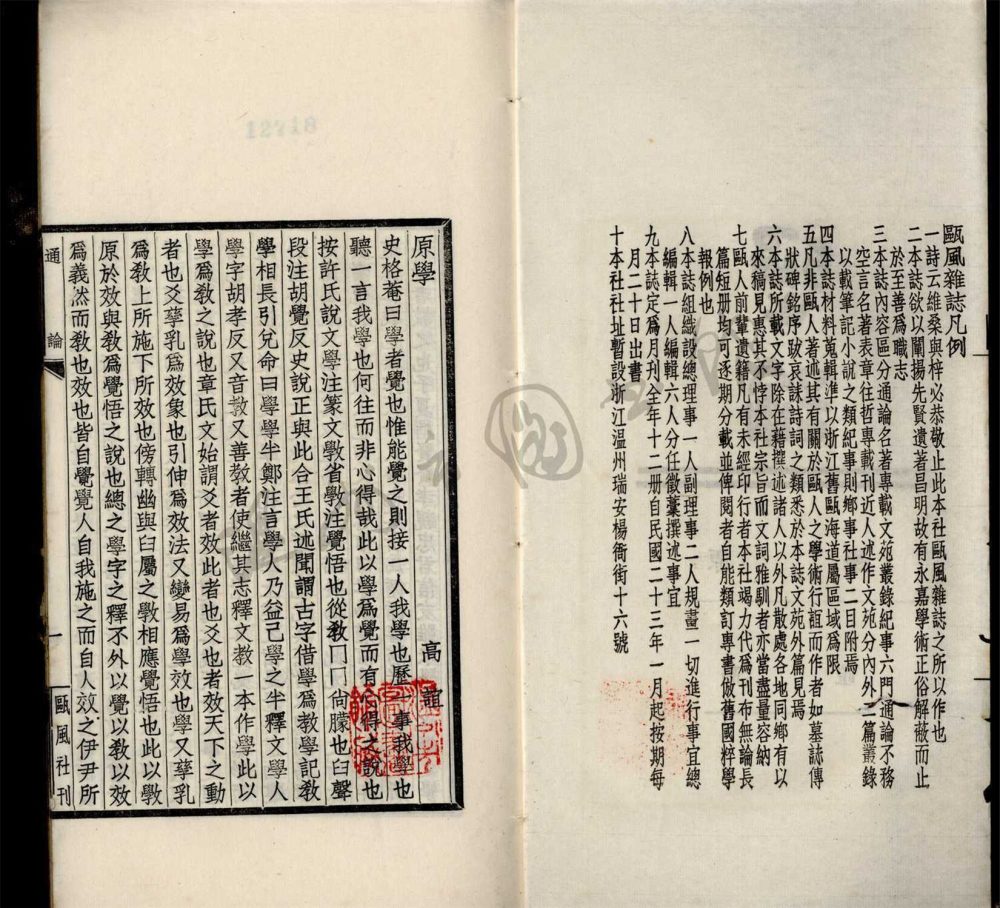 甌風雜誌凡例
一詩云維桑與梓必恭敬止此本社甌風雜誌之所以作也
二本誌欲以闡揚先賢遺著昌明故有永嘉學術正俗解蔽而止
於至善爲職志
三本誌內容區分通論名著專載文苑叢錄紀事六門通論不務
空言名著表章往哲專載刊近人述作文苑分內外二篇叢錄
以載筆記小說之類紀事則鄉事社事二目附焉
四本誌材料蒐輯準以浙江舊甌海道屬區域爲限
五凡非甌人著述其有關於甌人之學術行誼而作者如墓誌傳
狀碑銘序跋哀誄詩詞之類悉於本誌文苑外篇見焉
六本誌所載文字除在藉撰述諸人以外凡散處各地同鄉有以
來稿見惠其不悖本社宗旨而文詞雅馴者亦當盡量容納
七甌人前輩遺籍凡有未經印行者本社竭力代爲刊布無論長
篇短册均可逐期分載並俾閱者自能類訂專書倣舊國粹學
報例也
八本誌組織設總理事一人副理事二人規畫一切進行事宜總
編輯一人編輯六人分任徵藳撰述事宜
九本誌定爲月刊全年十二册自民國二十三年一月起按期每
月二十日出書
十本社社址暫設浙江溫州瑞安楊衙街十六號
12718
原學
高誼
史格菴曰學者覺也惟能覺之則接一人我學也歷一事我學也
聽一言我學也何往而非心得哉此以學爲覺而有心得之說也
按許氏說文學注篆文斆省斆注覺悟也從教冂冂尙朦也臼聲
段注胡覺反史說正與此合王氏述聞謂古字借學爲教學記教
學相長引兌命曰學學半鄭注言學人乃益己學之半釋文學人
學字胡孝反又音教又善教者使繼其志釋文教一本作學此以
學爲教之說也章氏文始謂爻者效此者也爻也者效天下之動
者也爻孳乳爲效象也引伸爲效法又變易爲學效也學又孳乳
爲教上所施下所效也傍轉幽與臼屬之斆相應覺悟也此以斆
原於效與教爲覺悟之說也總之學字之釋不外以覺以教以效
爲義然而教也效也皆自覺覺人自我施之而自人效之伊尹所
通論
一
甌風社刊